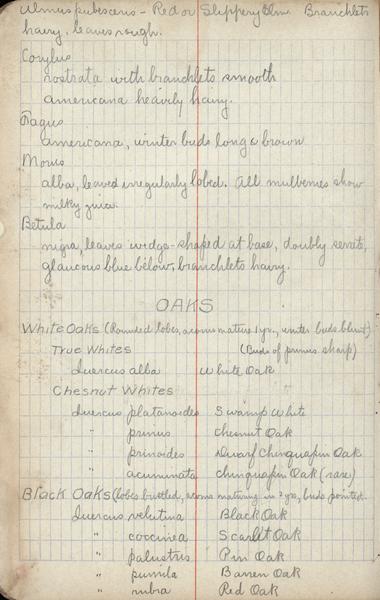 Ulmus pubescens - Red or Slippery Elm. Branchlets
hairy, leaves rough.
Corylus
rostrata with branchlets smooth
americana heavily hairy.
Fagus
americana, winter buds long & brown
Morus
alba, leaved irregularly lobed. All mulberries show
milky juice.
Betula
nigra, leaves wedge-shaped at base, doubly serrate,
glaucous blue below, branchlets hairy.
OAKS
White Oaks (Rounded lobes, acorns mature 1 yr., winter buds blunt)
True Whites (Buds of prinus sharp)
Quercus alba White Oak
Chesnut Whites
Quercus platanoides Swamp White
" prinus Chesnut Oak
" prinoides Dwarf Chinquapin Oak
" acuminata Chinquapin Oak (rare)
Black Oaks (lobes bristled, acorns maturing in 2 yrs, buds pointed.
Quercus velutina Black Oak
" coccinea Scarlet Oak
" palustris Pin Oak
" pumila Barren Oak
" rubra Red Oak